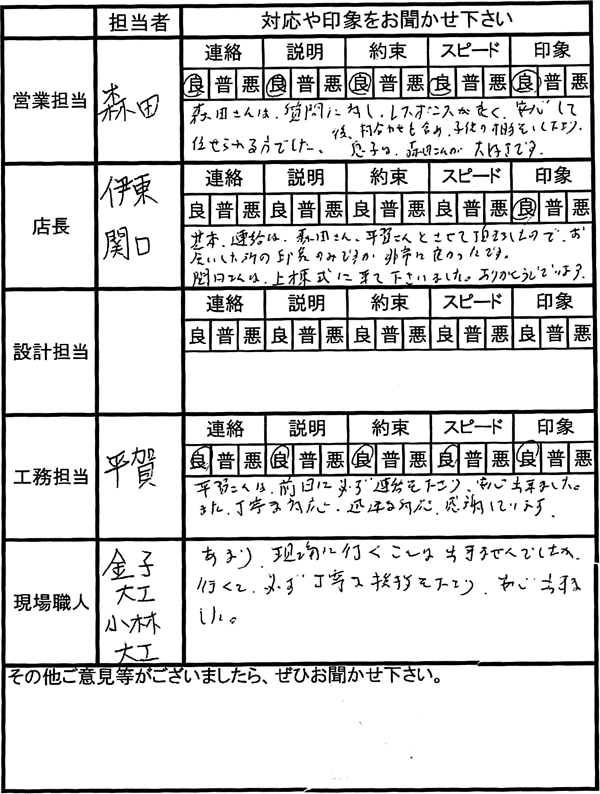 担当者 対応や印象をお聞かせ下さい
営業担当 森田
連絡 説明 約束 スピード 印象
良 普 悪 良 普 悪 良 普 悪 良 普 悪 良 普 悪
森田さんは、質問に対し、レスポンスが良く、安心して
任せられる方でした。
後、打合わせも含め、子供の相手をしたり、
息子は、森田さんが大好きです。
店長 伊東 関口
連絡 説明 約束 スピード 印象
良 普 悪 良 普 悪 良 普 悪 良 普 悪 良 普 悪
基本、連絡は、森田さん、平賀さんとさせて頂きましたので、お
会いした所の印象のみですが、非常に良かったです。
関口さんは、上棟式に来て下さいました。ありがとうございます。
設計担当
連絡 説明 約束 スピード 印象
良 普 悪 良 普 悪 良 普 悪 良 普 悪 良 普 悪
工務担当 平賀
連絡 説明 約束 スピード 印象
良 普 悪 良 普 悪 良 普 悪 良 普 悪 良 普 悪
平賀さんは、前日に必ず連絡を下さり、安心出来ました。
また、丁寧な対応、迅速な対応、感謝しています。
現場職人 金子大工 小林大工
あまり、現場に行くことは出来ませんでしたが、
行くと、必ず丁寧な挨拶を下さり、安心出来ま
した。
その他ご意見等がございましたら、ぜひお聞かせ下さい。